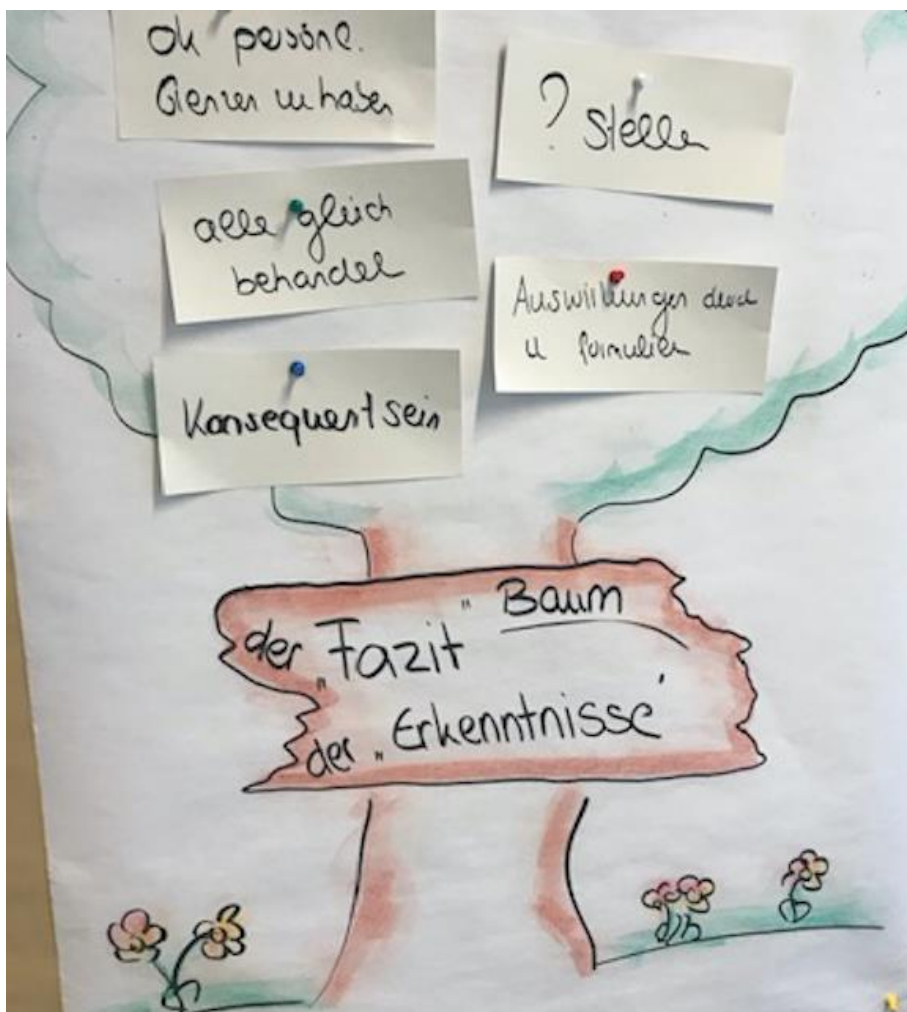 ok persönl.
Grenzen zu haben
? Stelle
alle gleich
behandel
Auswirkungen
u formulier
Konsequent sein
der „Fazit" Baum
der „Erkenntnisse"